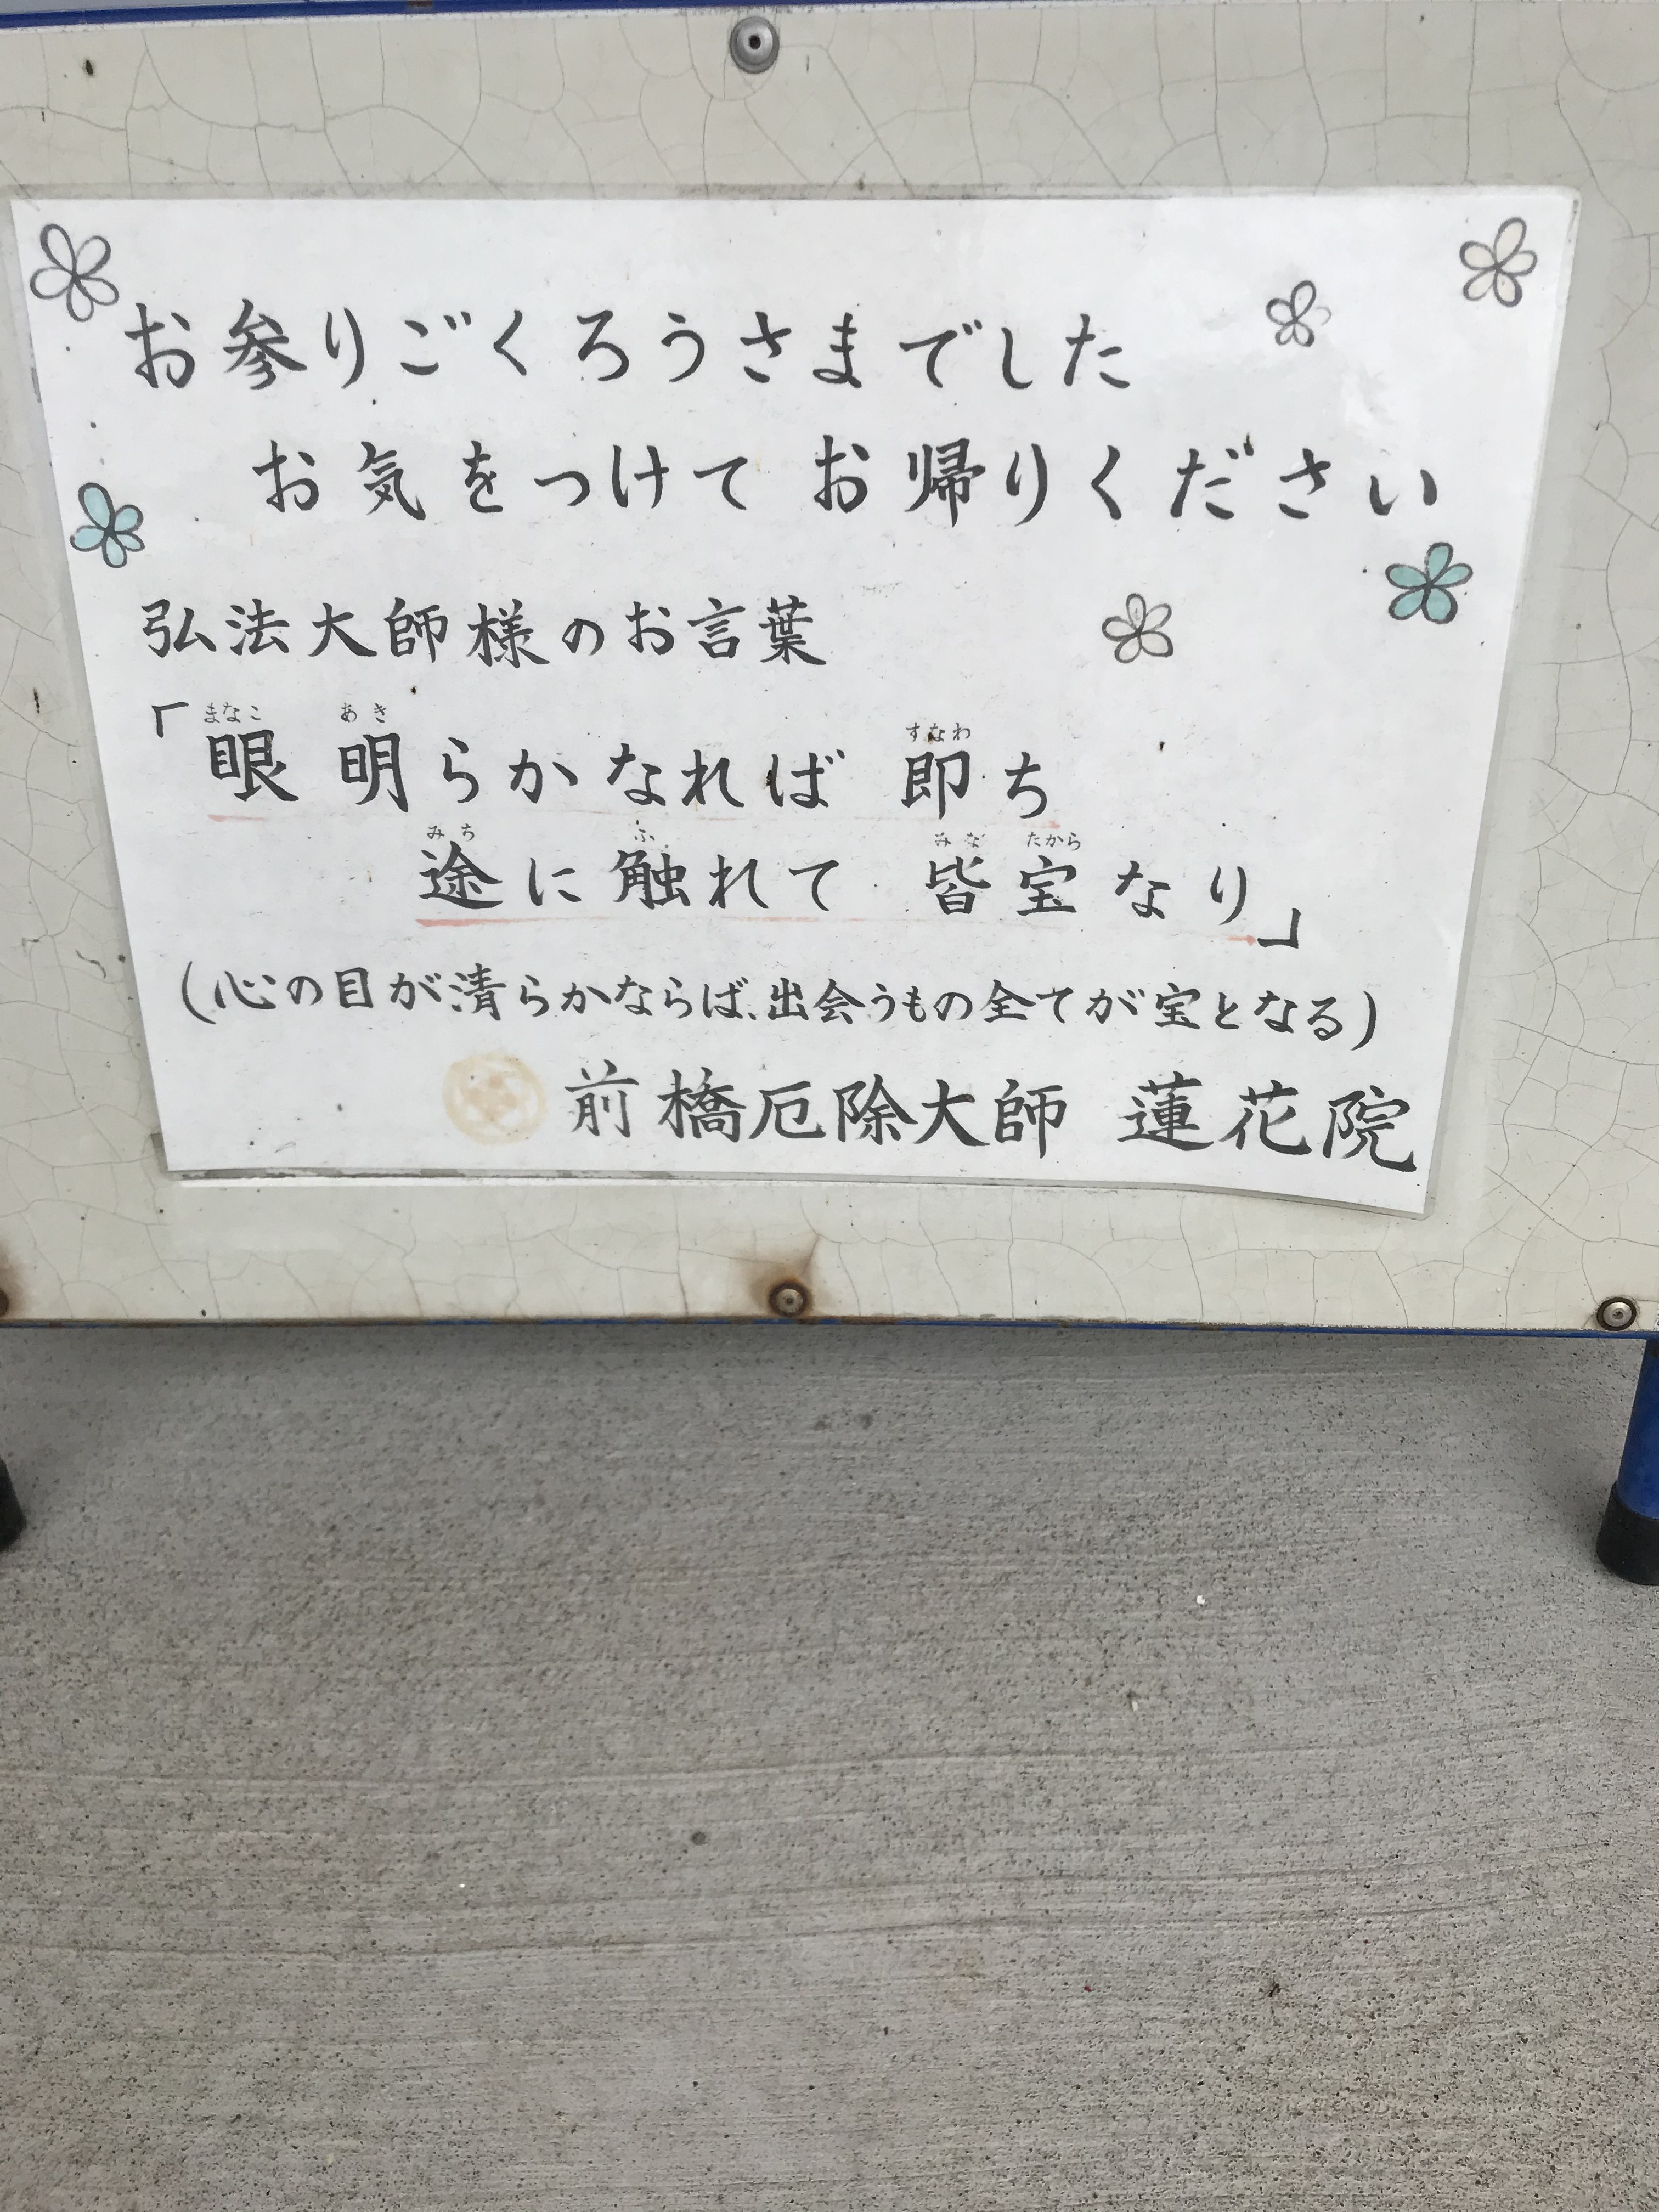 お参りごくろうさまでした
お気をつけて お帰りください
弘法大師様のお言葉
まなこ あき すなわ
「眼 明らかなれば 即ち
みち ふ みな たから
途に触れて 皆宝なり」
(心の目が清らかならば、出会うもの全てが宝となる)
前橋厄除大師 蓮花院